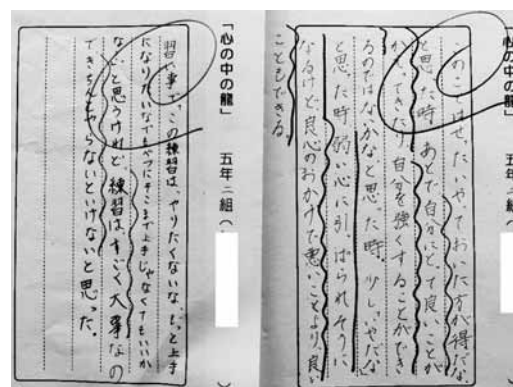 「心の中の龍」 五年二組(
このことはぜったいやっておいた方が得だな
と思った時、あとで自分にとって良いことが
かえってきたり、自分を強くすることができ
るのではないかなと思った時。少しいやだな
と思った時弱い心に引っぱられそうに
なるけど、良心のおかげで悪いことより、良い
こともできる。
「心の中の龍」 五年二組(
習い事で、この練習は、やりたくないな、もっと上手
になりたいなでもべつにそこまで上手じゃなくてもいいか
な、と思うけれど練習は、すごく大事なの
できちんとやらないといけないと思った。